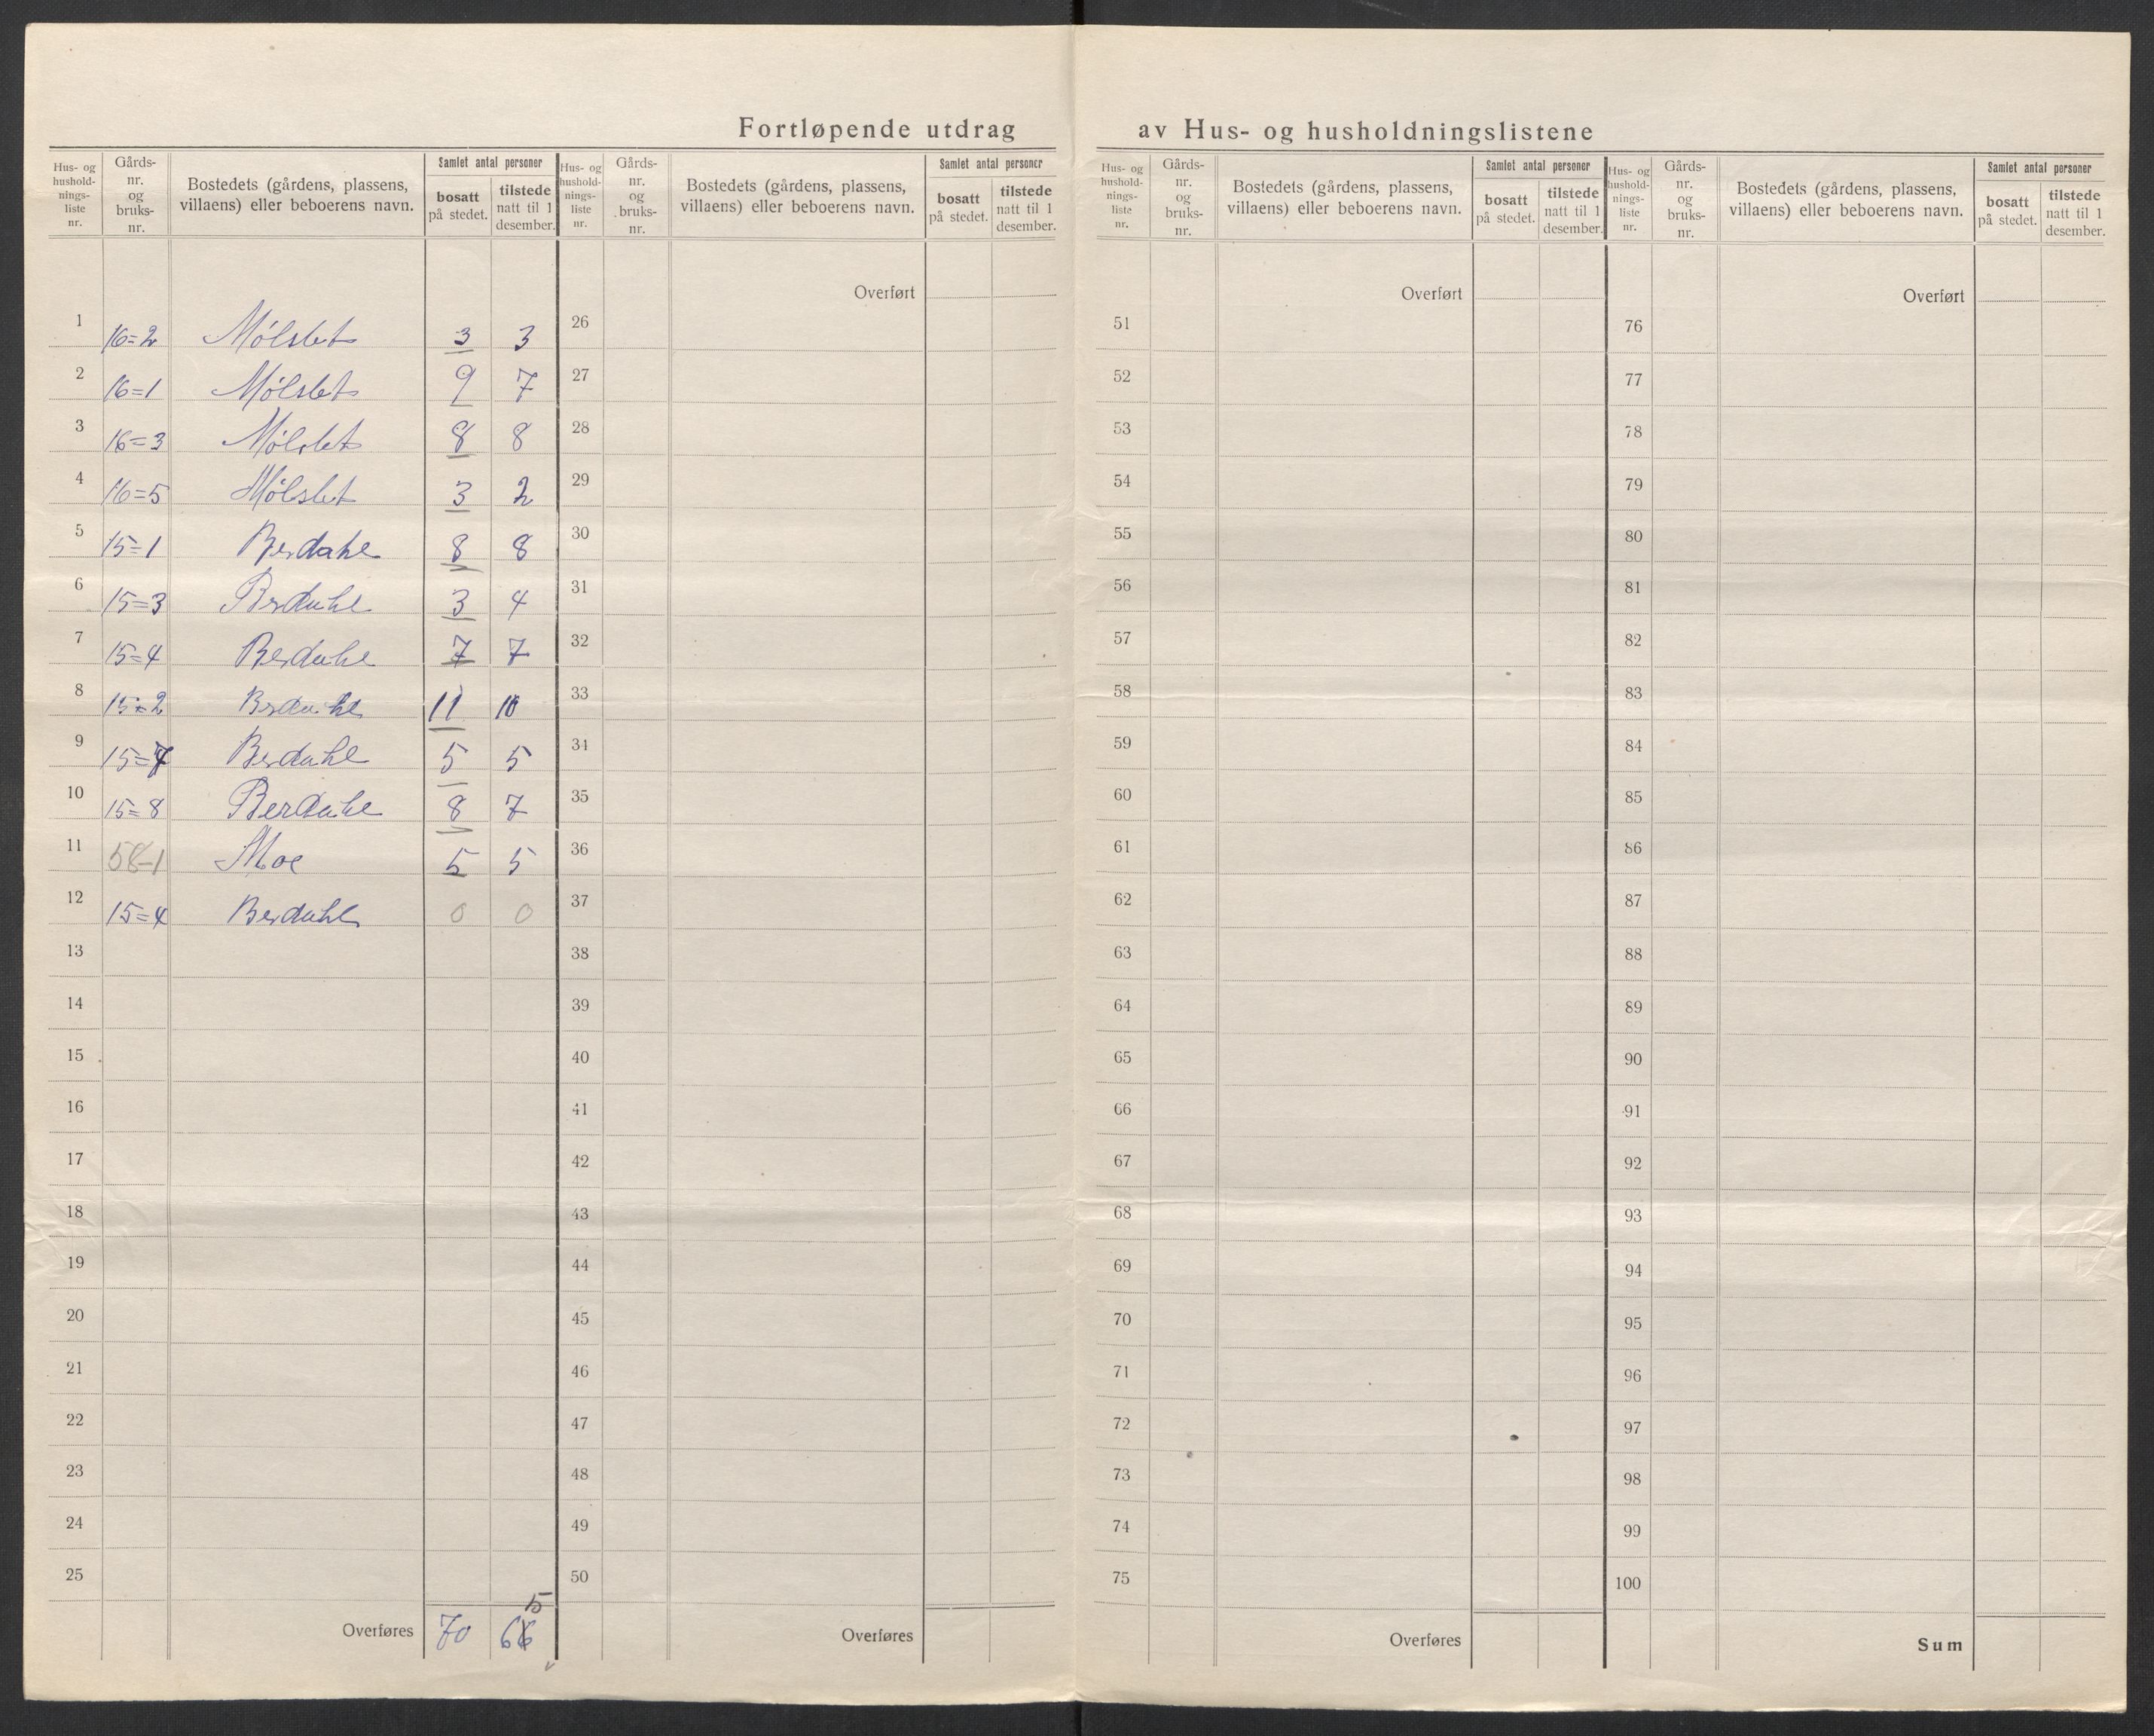 Fortløpende utdrag av Hus- og husholdningslistene
Hus- og hushold-nings-liste nr. | Gårds-nr. og bruks-nr. | Bostedets (gårdens, plassens, villaens) eller beboerens navn. | Samlet antal personer | bosatt på stedet. | tilstede natt til 1 desember.
1 16=2 Mølslet 3 3
2 16=1 Mølslet 9 7
3 16=3 Mølslet 8 8
4 16=5 Mølslet 3 2
5 15=1 Berdahl 8 8
6 15=3 Berdahl 3 4
7 15=4 Berdahl 7 7
8 15=2 Berdahl 11 10
9 15=7 Berdahl 5 5
10 15=8 Berdahl 8 7
11 58-1 Moe 5 5
12 15=4 Berdahl 0 0
13
14
15
16
17
18
19
20
21
22
23
24
25
Overføres 70 66 5
Hus- og hushold-nings-liste nr. | Gårds-nr. og bruks-nr. | Bostedets (gårdens, plassens, villaens) eller beboerens navn. | Samlet antal personer | bosatt på stedet. | tilstede natt til 1 desember.
Overført
26
27
28
29
30
31
32
33
34
35
36
37
38
39
40
41
42
43
44
45
46
47
48
49
50
Overføres
Hus- og hushold-nings-liste nr. | Gårds-nr. og bruks-nr. | Bostedets (gårdens, plassens, villaens) eller beboerens navn. | Samlet antal personer | bosatt på stedet. | tilstede natt til 1 desember.
Overført
51
52
53
54
55
56
57
58
59
60
61
62
63
64
65
66
67
68
69
70
71
72
73
74
75
Overføres
Hus- og hushold-nings-liste nr. | Gårds-nr. og bruks-nr. | Bostedets (gårdens, plassens, villaens) eller beboerens navn. | Samlet antal personer | bosatt på stedet. | tilstede natt til 1 desember.
Overført
76
77
78
79
80
81
82
83
84
85
86
87
88
89
90
91
92
93
94
95
96
97
98
99
100
Sum